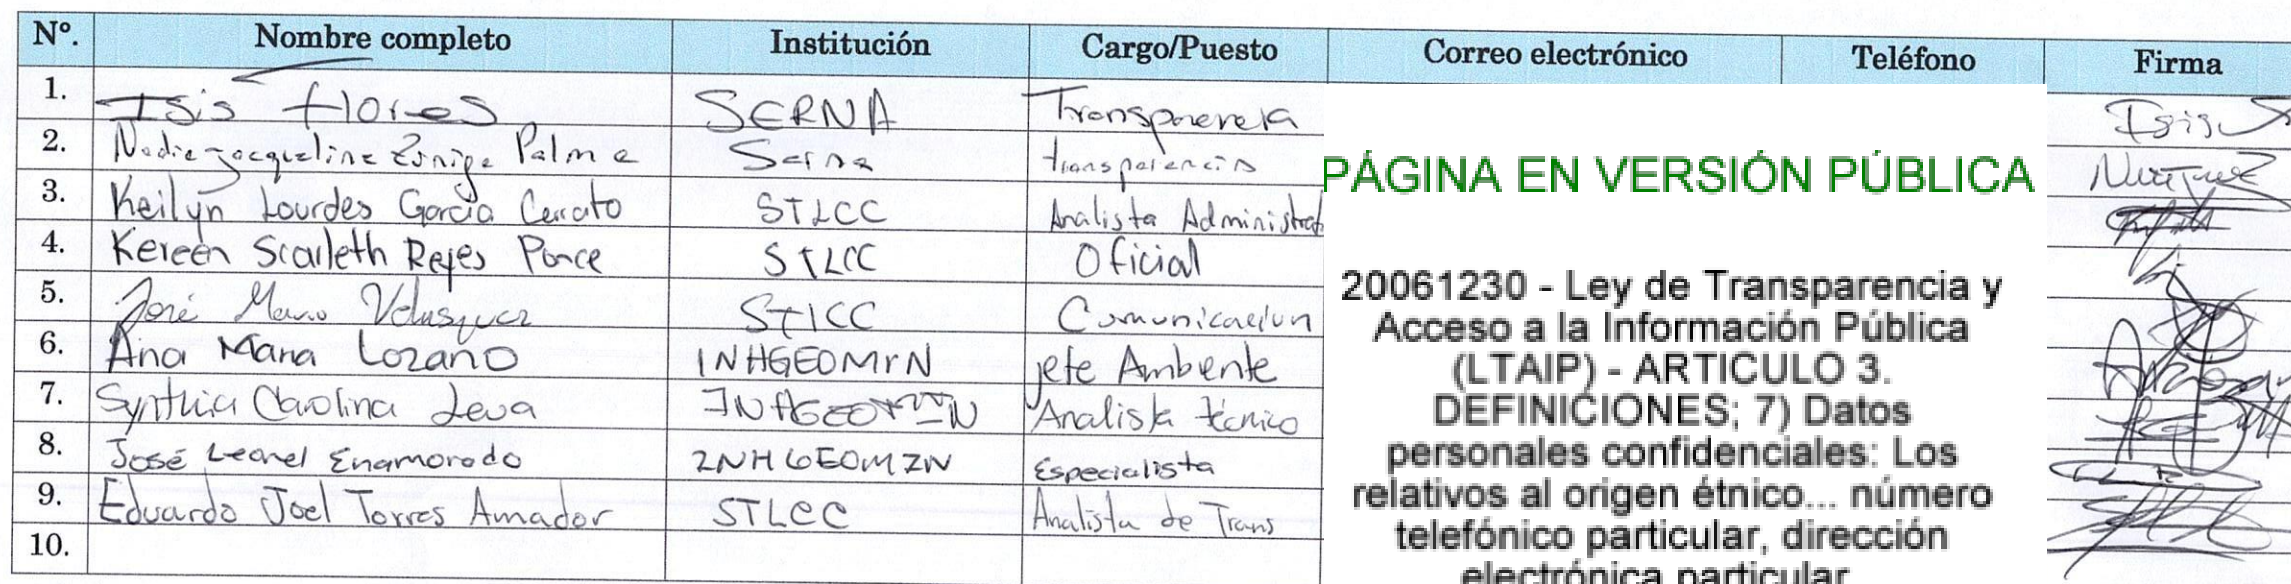 Nº. Nombre completo Institución Cargo/Puesto Correo electrónico Teléfono Firma
1. Isis flores SERNA Transparencia Isis
2. Nadie Jacqueline Zuniga Palma Serna transparencia
3. Keilyn Lourdes García Cerrato STLCC Analista Administrat
4. Kereen Scarleth Reyes Ponce STLCC Oficial
5. José Mario Velasquez STLCC Comunicacion
6. Ana Maria Lozano INHGEOMIN jefe Ambiente
7. Synthia Carolina Leva INHGEOMIN Analista técnico
8. José Leonel Enamorado INHGEOMIN Especialista
9. Eduardo Joel Torres Amador STLCC Analista de Trans
10.
PÁGINA EN VERSIÓN PÚBLICA
20061230 - Ley de Transparencia y
Acceso a la Información Pública
(LTAIP) - ARTICULO 3.
DEFINICIONES; 7) Datos
personales confidenciales: Los
relativos al origen étnico... número
telefónico particular, dirección
electrónica particular